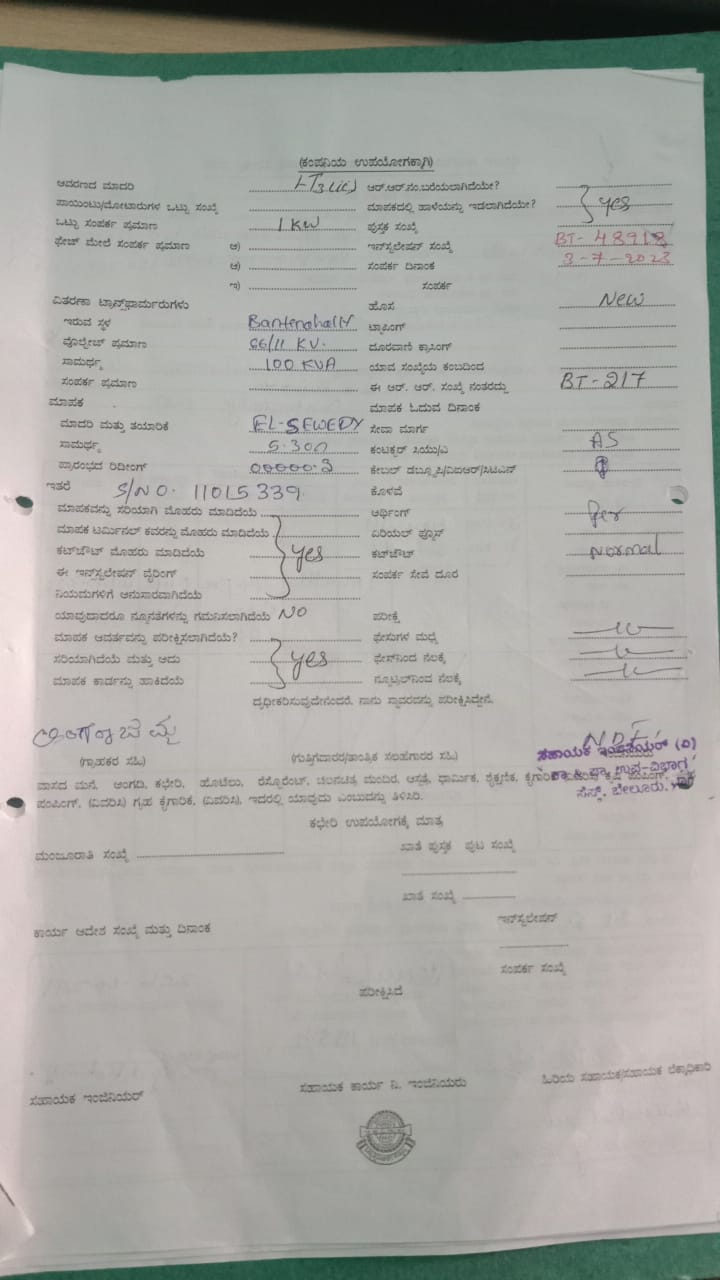 (ಕಂಪನಿಯ ಉಪಯೋಗಕ್ಕಾಗಿ)
ಆವರಣದ ಮಾದರಿ LT3 ಆರ್.ಆರ್.ನಂ.ಬರೆಯಲಾಗಿದೆಯೇ?
ಪಾಯಿಂಟು/ಮೋಟಾರುಗಳ ಒಟ್ಟು ಸಂಖ್ಯೆ ಮಾಪಕದಲ್ಲಿ ಹಾಳೆಯನ್ನು ಇಡಲಾಗಿದೆಯೇ? yes
ಒಟ್ಟು ಸಂಪರ್ಕ ಪ್ರಮಾಣ 1 KW ಪುಸ್ತಕ ಸಂಖ್ಯೆ
ಫೇಜ್ ಮೇಲೆ ಸಂಪರ್ಕ ಪ್ರಮಾಣ ಅ) ಇನ್‌ಸ್ಟಲೇಷನ್ ಸಂಖ್ಯೆ BT-48918
ಆ) ಸಂಪರ್ಕ ದಿನಾಂಕ 3-7-2023
ಇ) ಸಂಪರ್ಕ
ವಿತರಣಾ ಟ್ರಾನ್ಸ್‌ಫಾರ್ಮರುಗಳು ಹೊಸ New
ಇರುವ ಸ್ಥಳ Bantenahally ಟ್ಯಾಪಿಂಗ್
ವೊಲ್ಟೇಜ್ ಪ್ರಮಾಣ 66/11 KV. ದೂರವಾಣಿ ಕ್ರಾಸಿಂಗ್
ಸಾಮರ್ಥ್ಯ 100 KVA ಯಾವ ಸಂಖ್ಯೆಯ ಕಂಬದಿಂದ
ಸಂಪರ್ಕ ಪ್ರಮಾಣ ಈ ಆರ್. ಆರ್. ಸಂಖ್ಯೆ ನಂತರದ್ದು BT-217
ಮಾಪಕ ಮಾಪಕ ಓದುವ ದಿನಾಂಕ
ಮಾದರಿ ಮತ್ತು ತಯಾರಿಕೆ EL-SEWEDY ಸೇವಾ ಮಾರ್ಗ
ಸಾಮರ್ಥ್ಯ 5-30A ಕಂಟಕ್ಟರ್ ಸಿಯು/ಎ AS
ಪ್ರಾರಂಭದ ರಿಡಿಂಗ್ 00000.3 ಕೇಬಲ್ ಡಬ್ಲ್ಯೂಪಿ/ವಿಐಆರ್/ಸಿಟಿಎಸ್
ಇತರೆ S/NO. 11015339 ಕೊಳವೆ
ಮಾಪಕವನ್ನು ಸರಿಯಾಗಿ ಮೊಹರು ಮಾಡಿದೆಯೆ ಅರ್ಥಿಂಗ್ per
ಮಾಪಕ ಟರ್ಮಿನಲ್ ಕವರನ್ನು ಮೊಹರು ಮಾಡಿದೆಯೆ ಏರಿಯಲ್ ಫ್ಯೂಸ್
ಕಟ್‌ಔಟ್ ಮೊಹರು ಮಾಡಿದೆಯೆ yes ಕಟ್‌ಔಟ್ Normal
ಈ ಇನ್‌ಸ್ಟಲೇಷನ್ ವೈರಿಂಗ್ ಸಂಪರ್ಕ ಸೇವೆ ದೂರ
ನಿಯಮಗಳಿಗೆ ಅನುಸಾರವಾಗಿದೆಯೆ
ಯಾವುದಾದರೂ ನ್ಯೂನತೆಗಳನ್ನು ಗಮನಿಸಲಾಗಿದೆಯೆ NO ಪರೀಕ್ಷೆ
ಮಾಪಕ ಆವರ್ತವನ್ನು ಪರೀಕ್ಷಿಸಲಾಗಿದೆಯೆ? ಫೇಸುಗಳ ಮಧ್ಯ
ಸರಿಯಾಗಿದೆಯೆ ಮತ್ತು ಅದು yes ಫೇಸ್‌ನಿಂದ ನೆಲಕ್ಕೆ
ಮಾಪಕ ಕಾರ್ಡನ್ನು ಹಾಕಿದೆಯೆ ನ್ಯೂಟ್ರಲ್‌ನಿಂದ ನೆಲಕ್ಕೆ
ದೃಢೀಕರಿಸುವುದೇನೆಂದರೆ, ನಾನು ಸ್ಥಾವರವನ್ನು ಪರೀಕ್ಷಿಸಿದ್ದೇನೆ.
(ಗ್ರಾಹಕರ ಸಹಿ) (ಗುತ್ತಿಗೆದಾರರ/ತಾಂತ್ರಿಕ ಸಲಹೆಗಾರರ ಸಹಿ) ಸಹಾಯಕ ಇಂಜಿನಿಯರ್ (ವಿ)
ಕಾ & ಪಾ ಉಪ-ವಿಭಾಗ
ವಾಸದ ಮನೆ, ಅಂಗಡಿ, ಕಛೇರಿ, ಹೊಟೆಲು, ರೆಸ್ಟೊರೆಂಟ್, ಚಲನಚಿತ್ರ ಮಂದಿರ, ಆಸ್ಪತ್ರೆ, ಧಾರ್ಮಿಕ, ಶೈಕ್ಷಣಿಕ, ಕೈಗಾರಿಕೆ
ಸೆಸ್ಕ್, ಬೇಲೂರು.
ಪಂಪಿಂಗ್, (ವಿವರಿಸಿ) ಗೃಹ ಕೈಗಾರಿಕೆ, (ವಿವರಿಸಿ), ಇದರಲ್ಲಿ ಯಾವುದು ಎಂಬುದನ್ನು ತಿಳಿಸಿರಿ.
ಕಛೇರಿ ಉಪಯೋಗಕ್ಕೆ ಮಾತ್ರ
ಮಂಜೂರಾತಿ ಸಂಖ್ಯೆ ಖಾತೆ ಪುಸ್ತಕ ಪುಟ ಸಂಖ್ಯೆ
ಖಾತೆ ಸಂಖ್ಯೆ
ಕಾರ್ಯ ಆದೇಶ ಸಂಖ್ಯೆ ಮತ್ತು ದಿನಾಂಕ ಇನ್‌ಸ್ಟಲೇಷನ್
ಸಂಪರ್ಕ ಸಂಖ್ಯೆ
ಪರೀಕ್ಷಿಸಿದೆ
ಸಹಾಯಕ ಇಂಜಿನಿಯರ್ ಸಹಾಯಕ ಕಾರ್ಯ ನಿ. ಇಂಜಿನಿಯರು ಹಿರಿಯ ಸಹಾಯಕ/ಸಹಾಯಕ ಲೆಕ್ಕಾಧಿಕಾರಿ